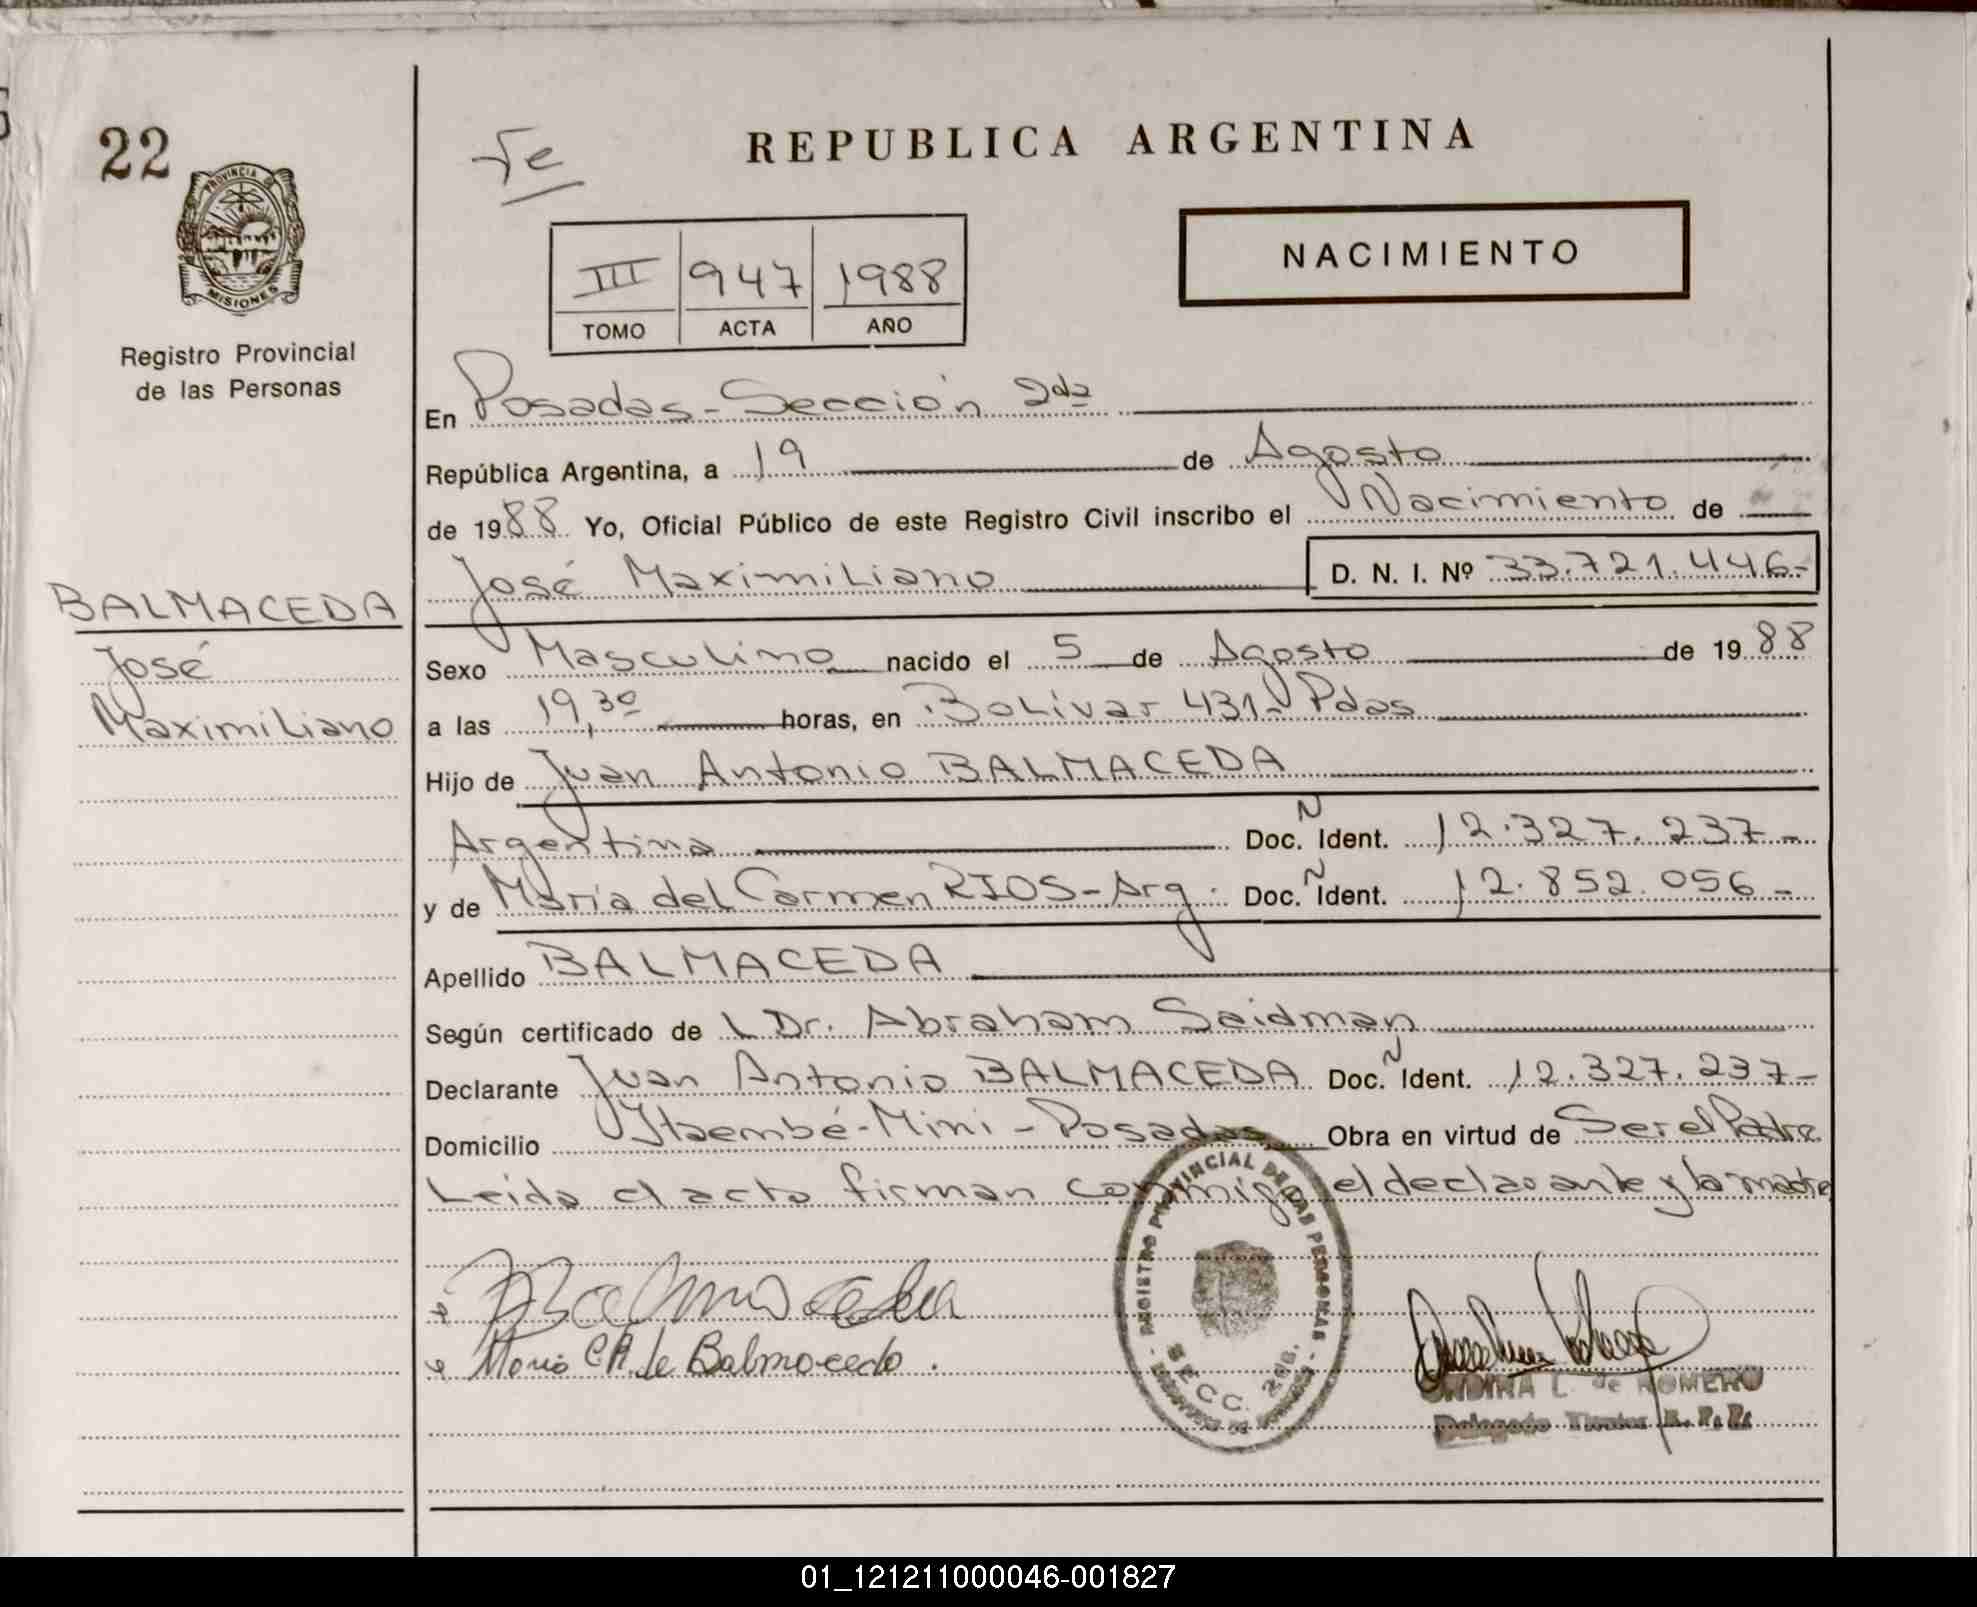 22
PROVINCIA DE
MISIONES
Registro Provincial
de las Personas
BALMACEDA
José
Maximiliano
REPUBLICA ARGENTINA
NACIMIENTO
III 947 1988
TOMO ACTA AÑO
En Posadas - Sección 2da
República Argentina, a 19 de Agosto
de 1988 Yo, Oficial Público de este Registro Civil inscribo el Nacimiento de
José Maximiliano D. N. I. Nº 33.721.446-
Sexo Masculino nacido el 5 de Agosto de 1988
a las 19,30 horas, en Bolivar 431- Pdas
Hijo de Juan Antonio BALMACEDA
Argentina Doc. N Ident. 12.327.237-
y de María del Carmen RIOS - Arg. Doc. N Ident. 12.852.056-
Apellido BALMACEDA
Según certificado de L Dr. Abraham Saidman
Declarante Juan Antonio BALMACEDA Doc. N Ident. 12.327.237-
Domicilio Itaembé-Mini - Posadas Obra en virtud de Ser el Padre
Leida el acta firman conmigo el declarante y la madre
REGISTRO PROVINCIAL DE LAS PERSONAS
SECC. 2da.
Balmaceda
Maria C.R. de Balmaceda.
ONDINA L. de ROMERO
Delegado Titular R. P. P.
01_121211000046-001827